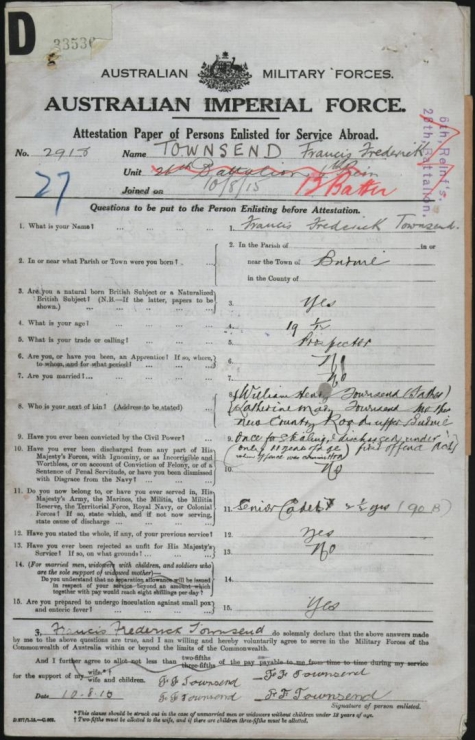 D
33536
AUSTRALIAN MILITARY FORCES.
AUSTRALIAN IMPERIAL FORCE.
Attestation Paper of Persons Enlisted for Service Abroad.
No. Name TOWNSEND Francis Frederick
Unit Battalion
Joined on 10/8/15
27
6th Reinf's.
26th Battalion.
Questions to be put to the Person Enlisting before Attestation.
1. What is your Name? 1. Francis Frederick Townsend
2. In or near what Parish or Town were you born? 2. In the Parish of in or
near the Town of
in the County of
3. Are you a natural born British Subject or a Naturalized British Subject? (N.B.—If the latter, papers to be shown.) 3. Yes
4. What is your age? 4. 19
5. What is your trade or calling? 5. Prospector
6. Are you, or have you been, an Apprentice? If so, where, to whom, and for what period? 6. No
7. Are you married? 7. No
8. Who is your next of kin? (Address to be stated) 8. William Henry Townsend (Father)
Townsend
New Country Road upper
9. Have you ever been convicted by the Civil Power? 9. Once for
10. Have you ever been discharged from any part of His Majesty's Forces, with Ignominy, or as Incorrigible and Worthless, or on account of Conviction of Felony, or of a Sentence of Penal Servitude, or have you been dismissed with Disgrace from the Navy? 10. No
11. Do you now belong to, or have you ever served in, His Majesty's Army, the Marines, the Militia, the Militia Reserve, the Territorial Force, Royal Navy, or Colonial Forces? If so, state which, and if not now serving, state cause of discharge 11. Senior Cadets
12. Have you stated the whole, if any, of your previous service? 12. Yes
13. Have you ever been rejected as unfit for His Majesty's Service? If so, on what grounds? 13. No
14. (For married men, widowers with children, and soldiers who are the sole support of widowed mother)—
Do you understand that no separation allowance will be issued in respect of your service beyond an amount which together with pay would reach eight shillings per day? 14.
15. Are you prepared to undergo inoculation against small pox and enteric fever? 15. Yes
I, Francis Frederick Townsend do solemnly declare that the above answers made
by me to the above questions are true, and I am willing and hereby voluntarily agree to serve in the Military Forces of the
Commonwealth of Australia within or beyond the limits of the Commonwealth.
And I further agree to allot not less than two-fifths three-fifths of the pay payable to me from time to time during my service
for the support of my wife wife and children. F F Townsend F F Townsend
Date 10-8-15 F F Townsend F F Townsend
Signature of person enlisted.
*This clause should be struck out in the case of unmarried men or widowers without children under 18 years of age.
† Two-fifths must be allotted to the wife, and if there are children three-fifths must be allotted.